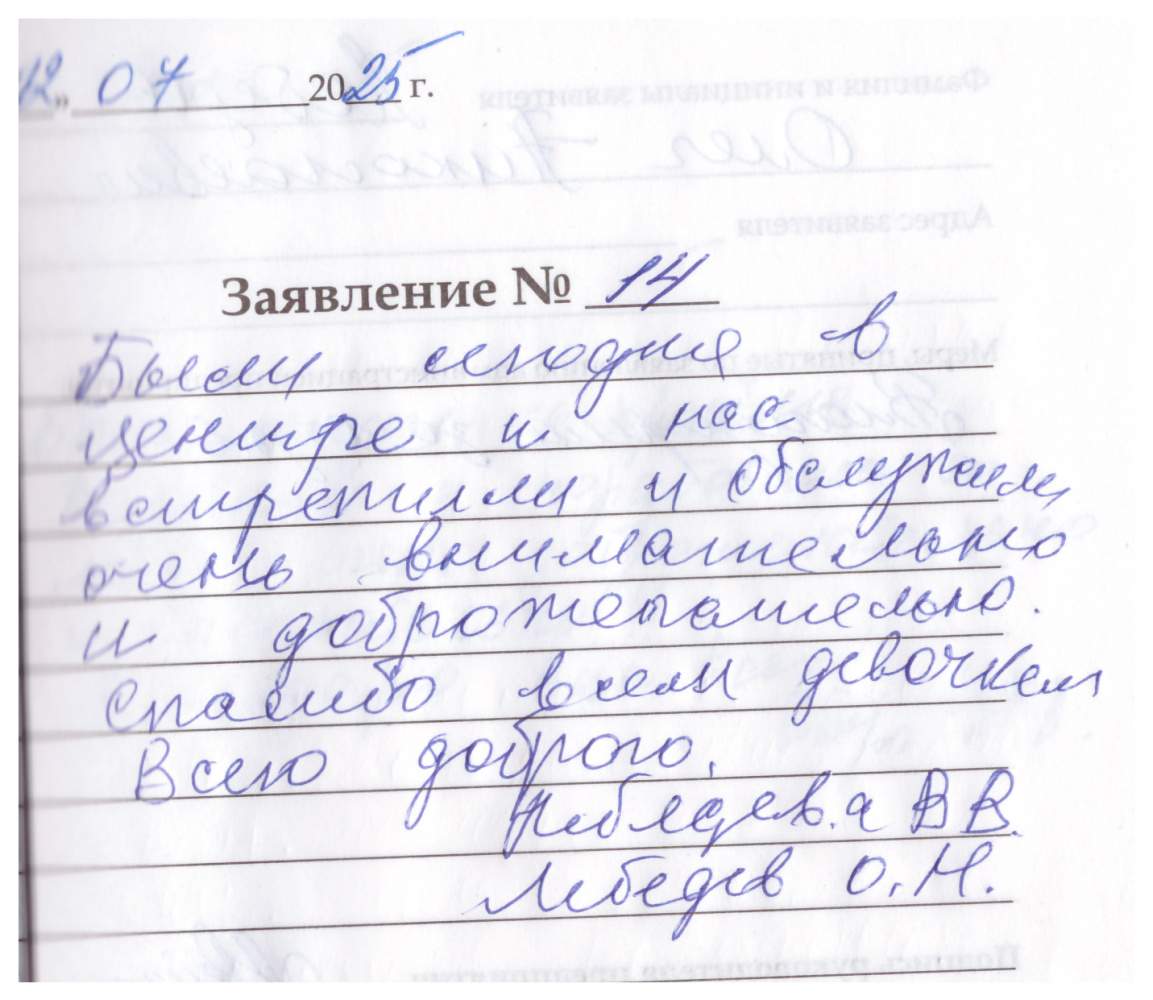 12 „ 07 2025 г.
Заявление № 14
Были сегодня в
центре и нас
встретили и обслужили
очень внимательно
и доброжелательно.
Спасибо всем девочкам
Всего доброго.
Лебедева В В.
Лебедев О. Н.